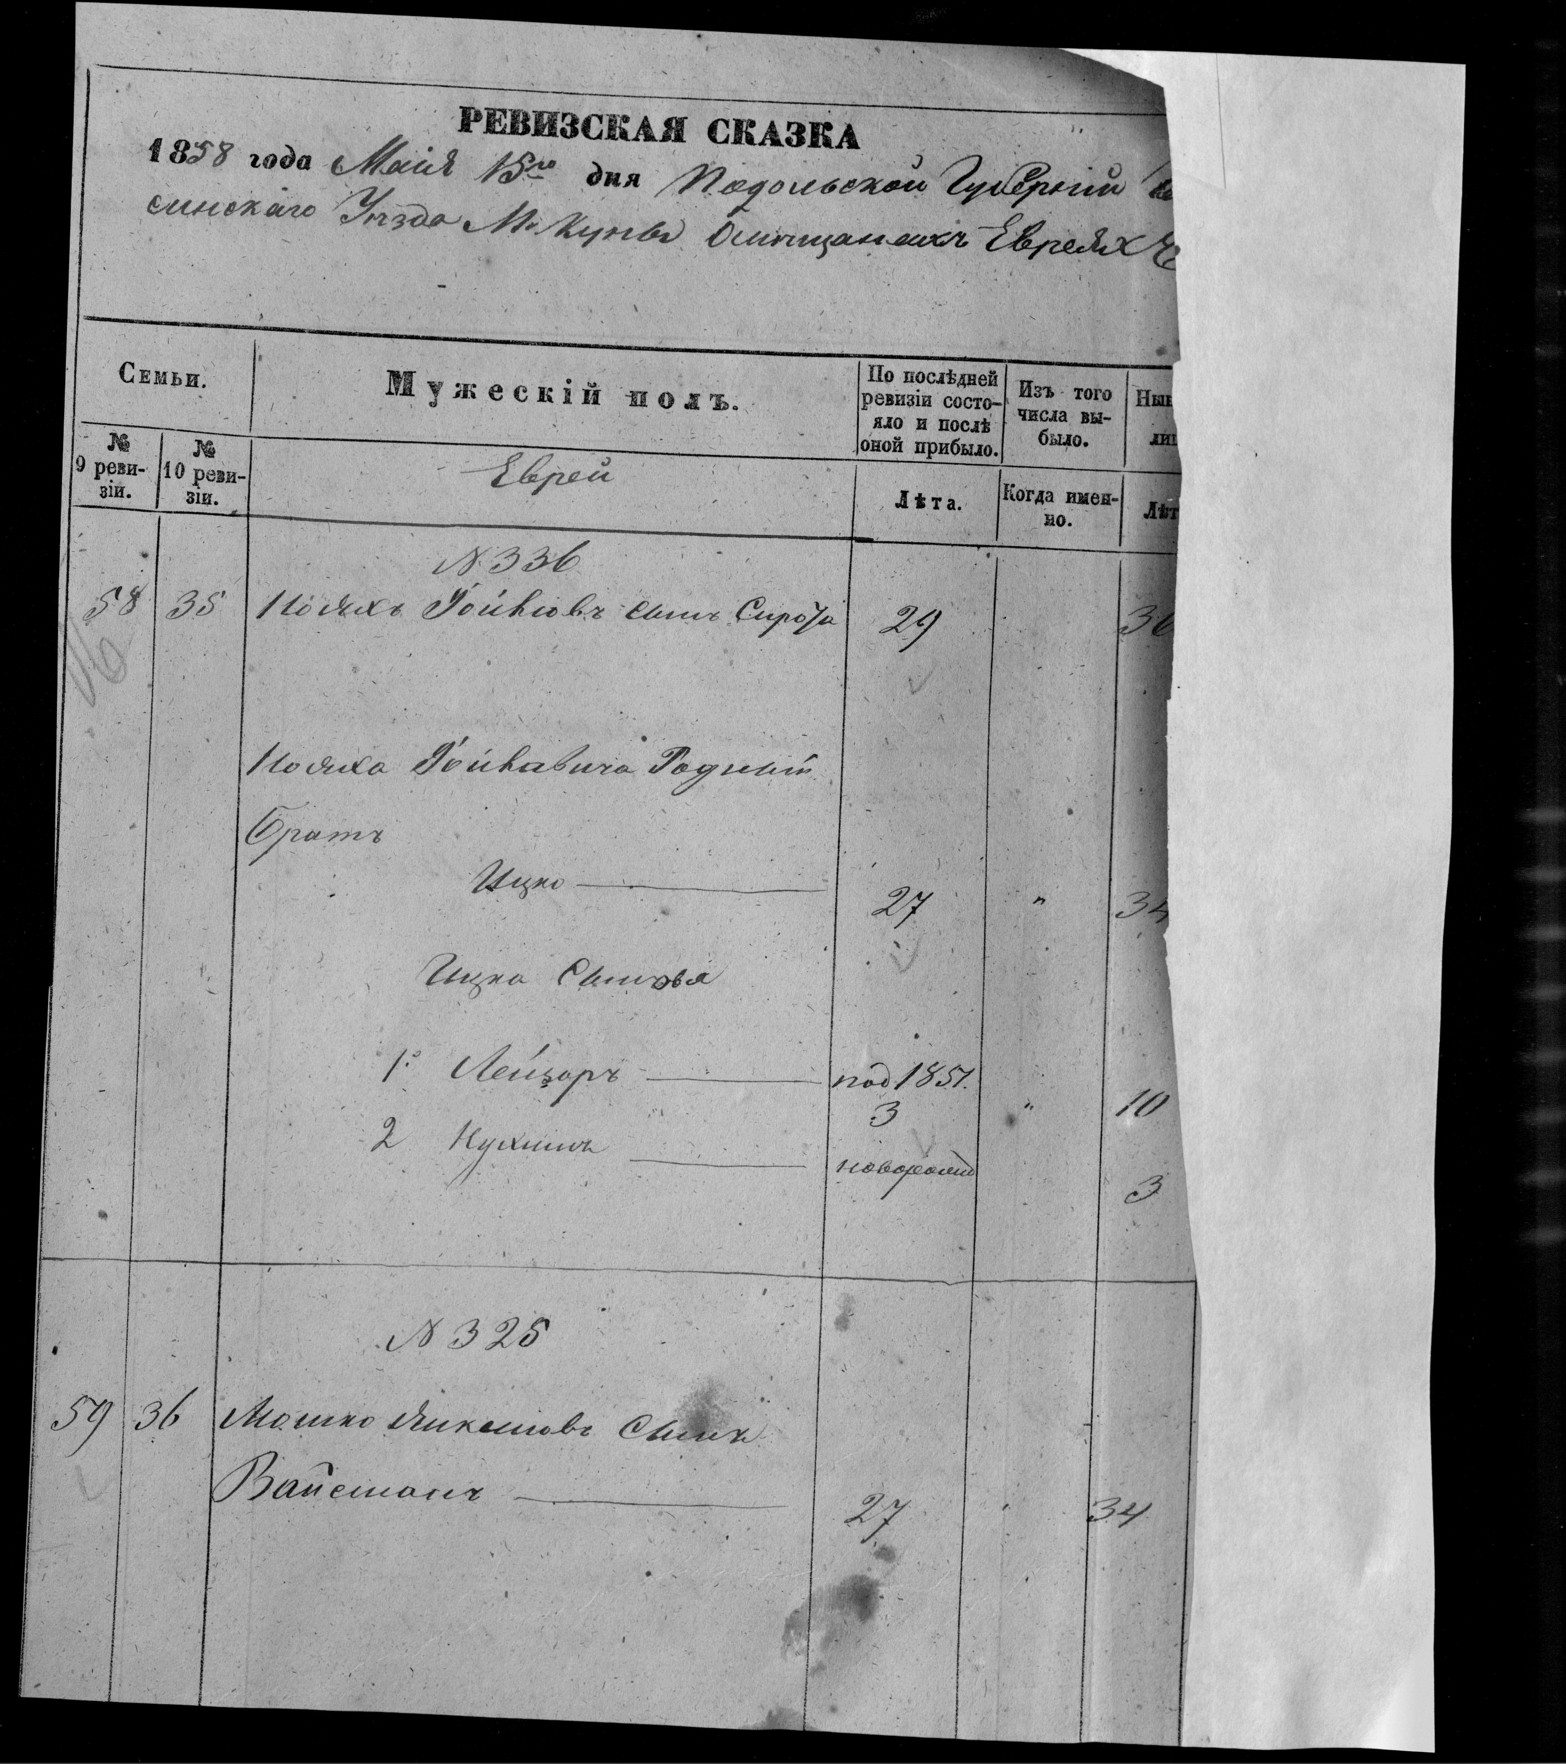 РЕВИЗСКАЯ СКАЗКА
1858 года Маія 15го дня Подольской Губерніи
синскаго Уѣзда М. Омѣщанахъ Евреяхъ
Семьи.
Мужескій полъ.
По послѣдней ревизіи состо-
яло и послѣ
оной прибыло.
Изъ того
числа вы-
было.
Нын
лиц
№
9 реви-
зіи.
№
10 реви-
зіи.
Еврей
Лѣта.
Когда имен-
но.
Лѣт
N 336
58 35 Нояхъ сынъ Сирота 29
Нояха Родный
братъ
Ицко 27 " 34
Ицка Сыновья
1. Лейзоръ под 1851.
3 " 10
2 Нухимъ новорожд
3
N 325
59 36 Мошко сынъ
Вайсманъ 27 34